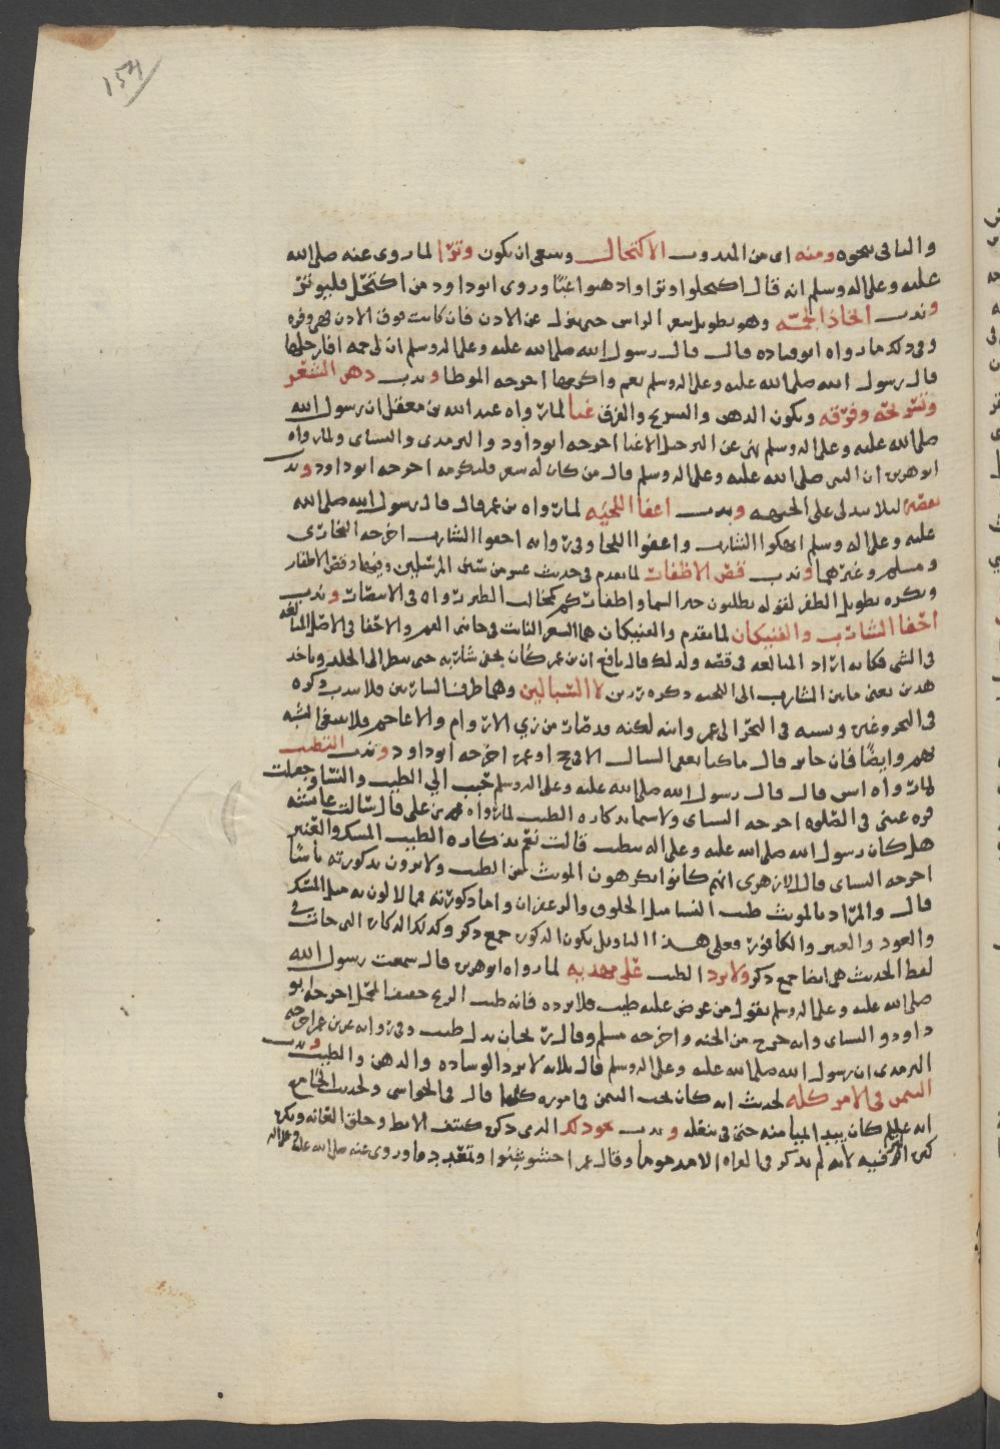 154
ومنه اى من المندوب الاكتحال وينبغى ان يكون وترا لما روى عنه صلى الله
عليه وعلى اله وسلم انه قال اكتحلوا وترا وادهنوا غبا وروى ابو داود من اكتحل فليوتر
وندب اتخاذ الجمه وهو تطويل شعر الراس حتى ينزل عن الاذن فان كانت فوق الاذن فهى وفره
وفى ذلك ما رواه ابو قتاده قال قال رسول الله صلى الله عليه وعلى اله وسلم ان لى جمه افارجلها
قال رسول الله صلى الله عليه وعلى اله وسلم نعم واكرمها اخرجه الموطا وندب دهن الشعر
وتسريحه وفرقه ويكون الدهن والتسريح والفرق غبا لما رواه عبد الله بن مغفل ان رسول الله
صلى الله عليه وعلى اله وسلم نهى عن الترجل الا غبا اخرجه ابو داود والترمذى والنساى ولما رواه
ابو هريره ان النبى صلى الله عليه وعلى اله وسلم قال من كان له شعر فليكرمه اخرجه ابو داود وندب
ليلا على الجبهه وندب اعفا اللحيه لما رواه بن عمر قال قال رسول الله صلى الله
عليه وعلى اله وسلم انهكوا الشارب واعفوا اللحا وفى روايه احفوا الشارب اخرجه البخارى
ومسلم وغيرهما وندب قص الاظفار لما تقدم فى حديث عشر من سنن المرسلين وفيها وقص الاظفار
ويكره تطويل الظفر لقوله يطلبون خبر السما واظفارهم كمخالب الطير رواه فى الانتصار وندب
احفا الشارب والفنيكان لما تقدم والفنيكان هما الشعر النابت فى جانبى الفم والاحفا فى الاصل المبالغه
فى الشى فكانه اراد المبالغه فى قصه ولذلك قال نافع ان بن عمر كان يحفى شاربه حتى ينظر الى الجلد وياخذ
هذين يعنى ما بين الشارب الى اللحيه ذكره رزين لا السبالين وهما طرفا الشاربين فلا يندب ذكره
فى البحر وغيره ونسبه فى البحر الى عمر وابنه لكنه قد صار من زي الاروام والاعاجم فلا ينبغى التشبه
بهم وايضا فان جابر قال ما كنا نعفى السبال الا فى حج او عمره اخرجه ابو داود وندب التطيب
لما رواه انس قال قال رسول الله صلى الله عليه وعلى اله وسلم حبب الي الطيب والنسا وجعلت
قره عينى فى الصلوه اخرجه النساى ولا سيما بذكاره الطيب لما رواه محمد بن على قال سالت عائشه
هل كان رسول الله صلى الله عليه وعلى اله يتطيب قالت نعم بذكاره الطيب المسك والعنبر
اخرجه النساى قال الازهرى انهم كانوا يكرهون المونث من الطيب ولا يرون بذكورته باسا
قال والمراد بالمونث طيب النسا مثل الخلوق والزعفران واما ذكورته فما لا لون له مثل المسك
والعود والعنبر والكافور فعلى هذا التاويل يكون الذكوره جمع ذكر وكذلك الذكاره التى جات فى
لفظ الحديث هى ايضا جمع ذكر ولا يرد الطيب على مهديه لما رواه ابو هريره قال سمعت رسول الله
صلى الله عليه وعلى اله وسلم يقول من عرض عليه طيب فلا يرده فانه طيب الريح خفيف المحمل اخرجه ابو
داود والنساى وانه خرج من الجنه واخرجه مسلم وقال ريحان بدل طيب وفى روايه عن بن عمر اخرجه
الترمذى ان رسول الله صلى الله عليه وعلى اله وسلم قال ثلاثه لا ترد الوساده والدهن والطيب وندب
التيمن فى الامور كله لحديث انه كان يحب التيمن فى اموره كلها قال فى الحواشى ولحديث الجامع
انه عليلم كان يبدا الميامنه حتى فى تنعله وندب عود لك الذى ذكر كنتف الابط وحلق العانه